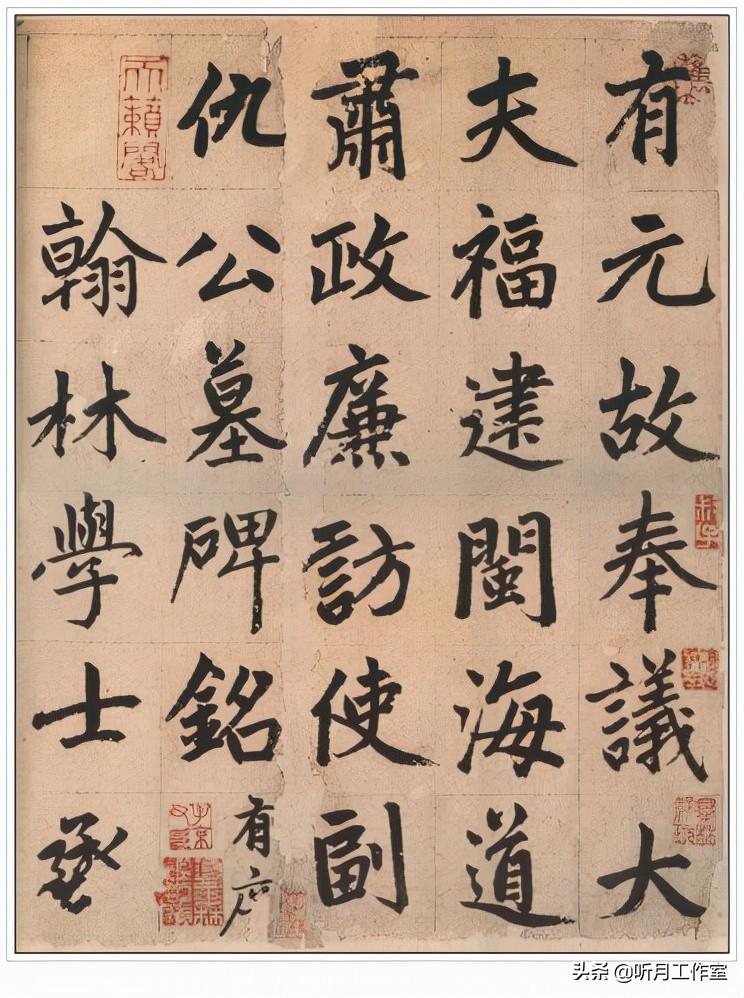 有元故奉議大
夫福建閩海道
肅政廉訪使副
仇公墓碑銘有序
天籟閣
翰林學士承
头条 @听月工作室